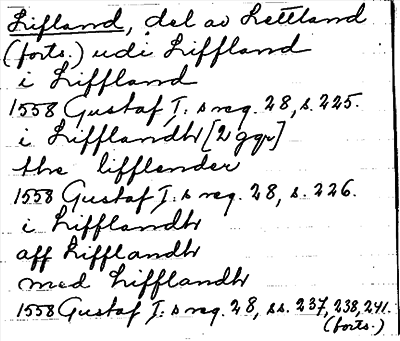 Lifland, del av Lettland
(forts.) udi Liffland
i Liffland
1558 Gustaf I:s reg. 28, s. 225.
i Lifflandh [2 ggr]
the lifflender
1558 Gustaf I:s reg. 28, s. 226.
i Lifflandh
aff Lifflandh
med Lifflandh
1558 Gustaf I:s reg. 28, ss. 237, 238, 241.
(forts.)